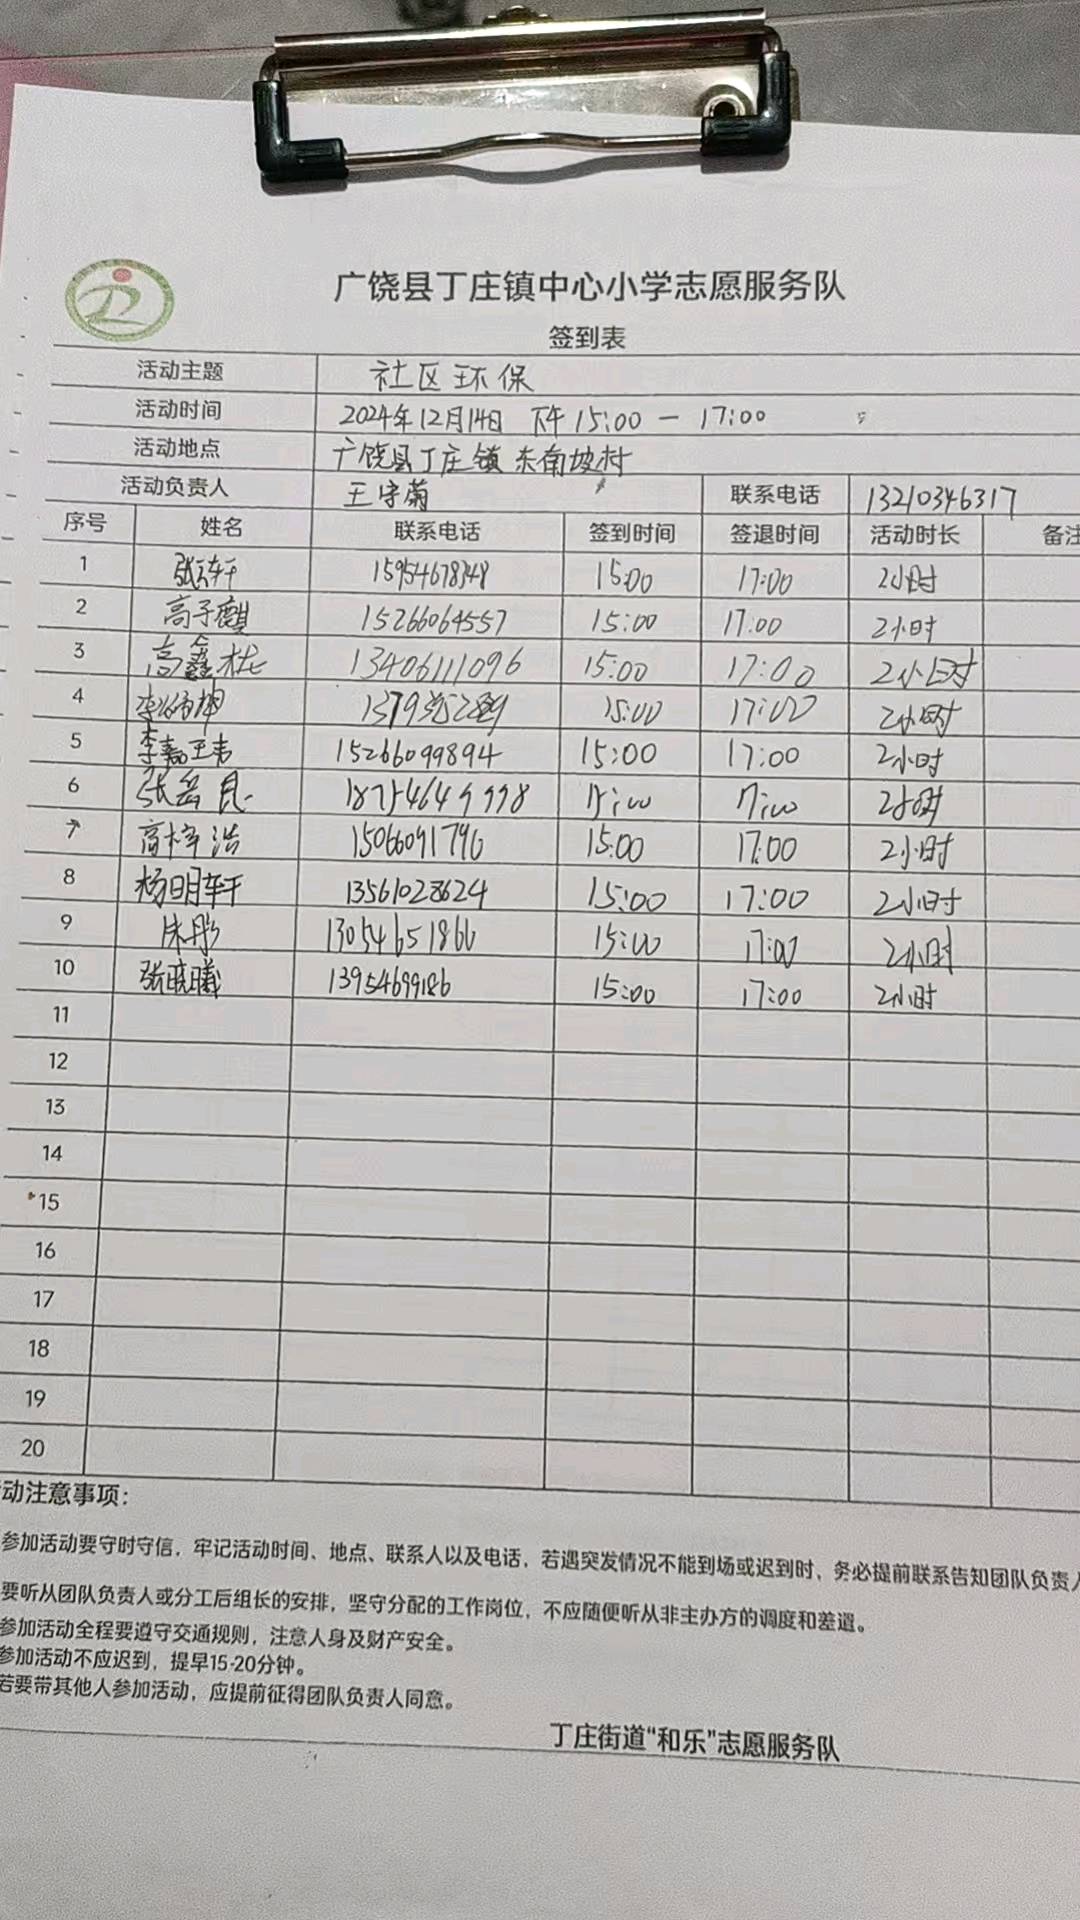 广饶县丁庄镇中心小学志愿服务队
签到表
活动主题 社区环保
活动时间 2024年12月14日 下午15:00 — 17:00
活动地点 广饶县丁庄镇东南坡村
活动负责人 王守菊 联系电话 13210346317
序号 姓名 联系电话 签到时间 签退时间 活动时长 备注
1 15954678348 15:00 17:00 2小时
2 高子麒 15266064557 15:00 17:00 2小时
3 高鑫栊 13406111096 15:00 17:00 2小时
4 15:00 17:00 2小时
5 李嘉玮 15266099894 15:00 17:00 2小时
6 张岳昆 18754649998 2小时
7 高梓浩 15066091796 15:00 17:00 2小时
8 杨明轩 13561028624 15:00 17:00 2小时
9 朱彤 13054651866 15:00 17:00 2小时
10 张晓曦 13954699186 15:00 17:00 2小时
11
12
13
14
15
16
17
18
19
20
动注意事项：
参加活动要守时守信，牢记活动时间、地点、联系人以及电话，若遇突发情况不能到场或迟到时，务必提前联系告知团队负责人
要听从团队负责人或分工后组长的安排，坚守分配的工作岗位，不应随便听从非主办方的调度和差遣。
参加活动全程要遵守交通规则，注意人身及财产安全。
参加活动不应迟到，提早15-20分钟。
若要带其他人参加活动，应提前征得团队负责人同意。
丁庄街道“和乐”志愿服务队